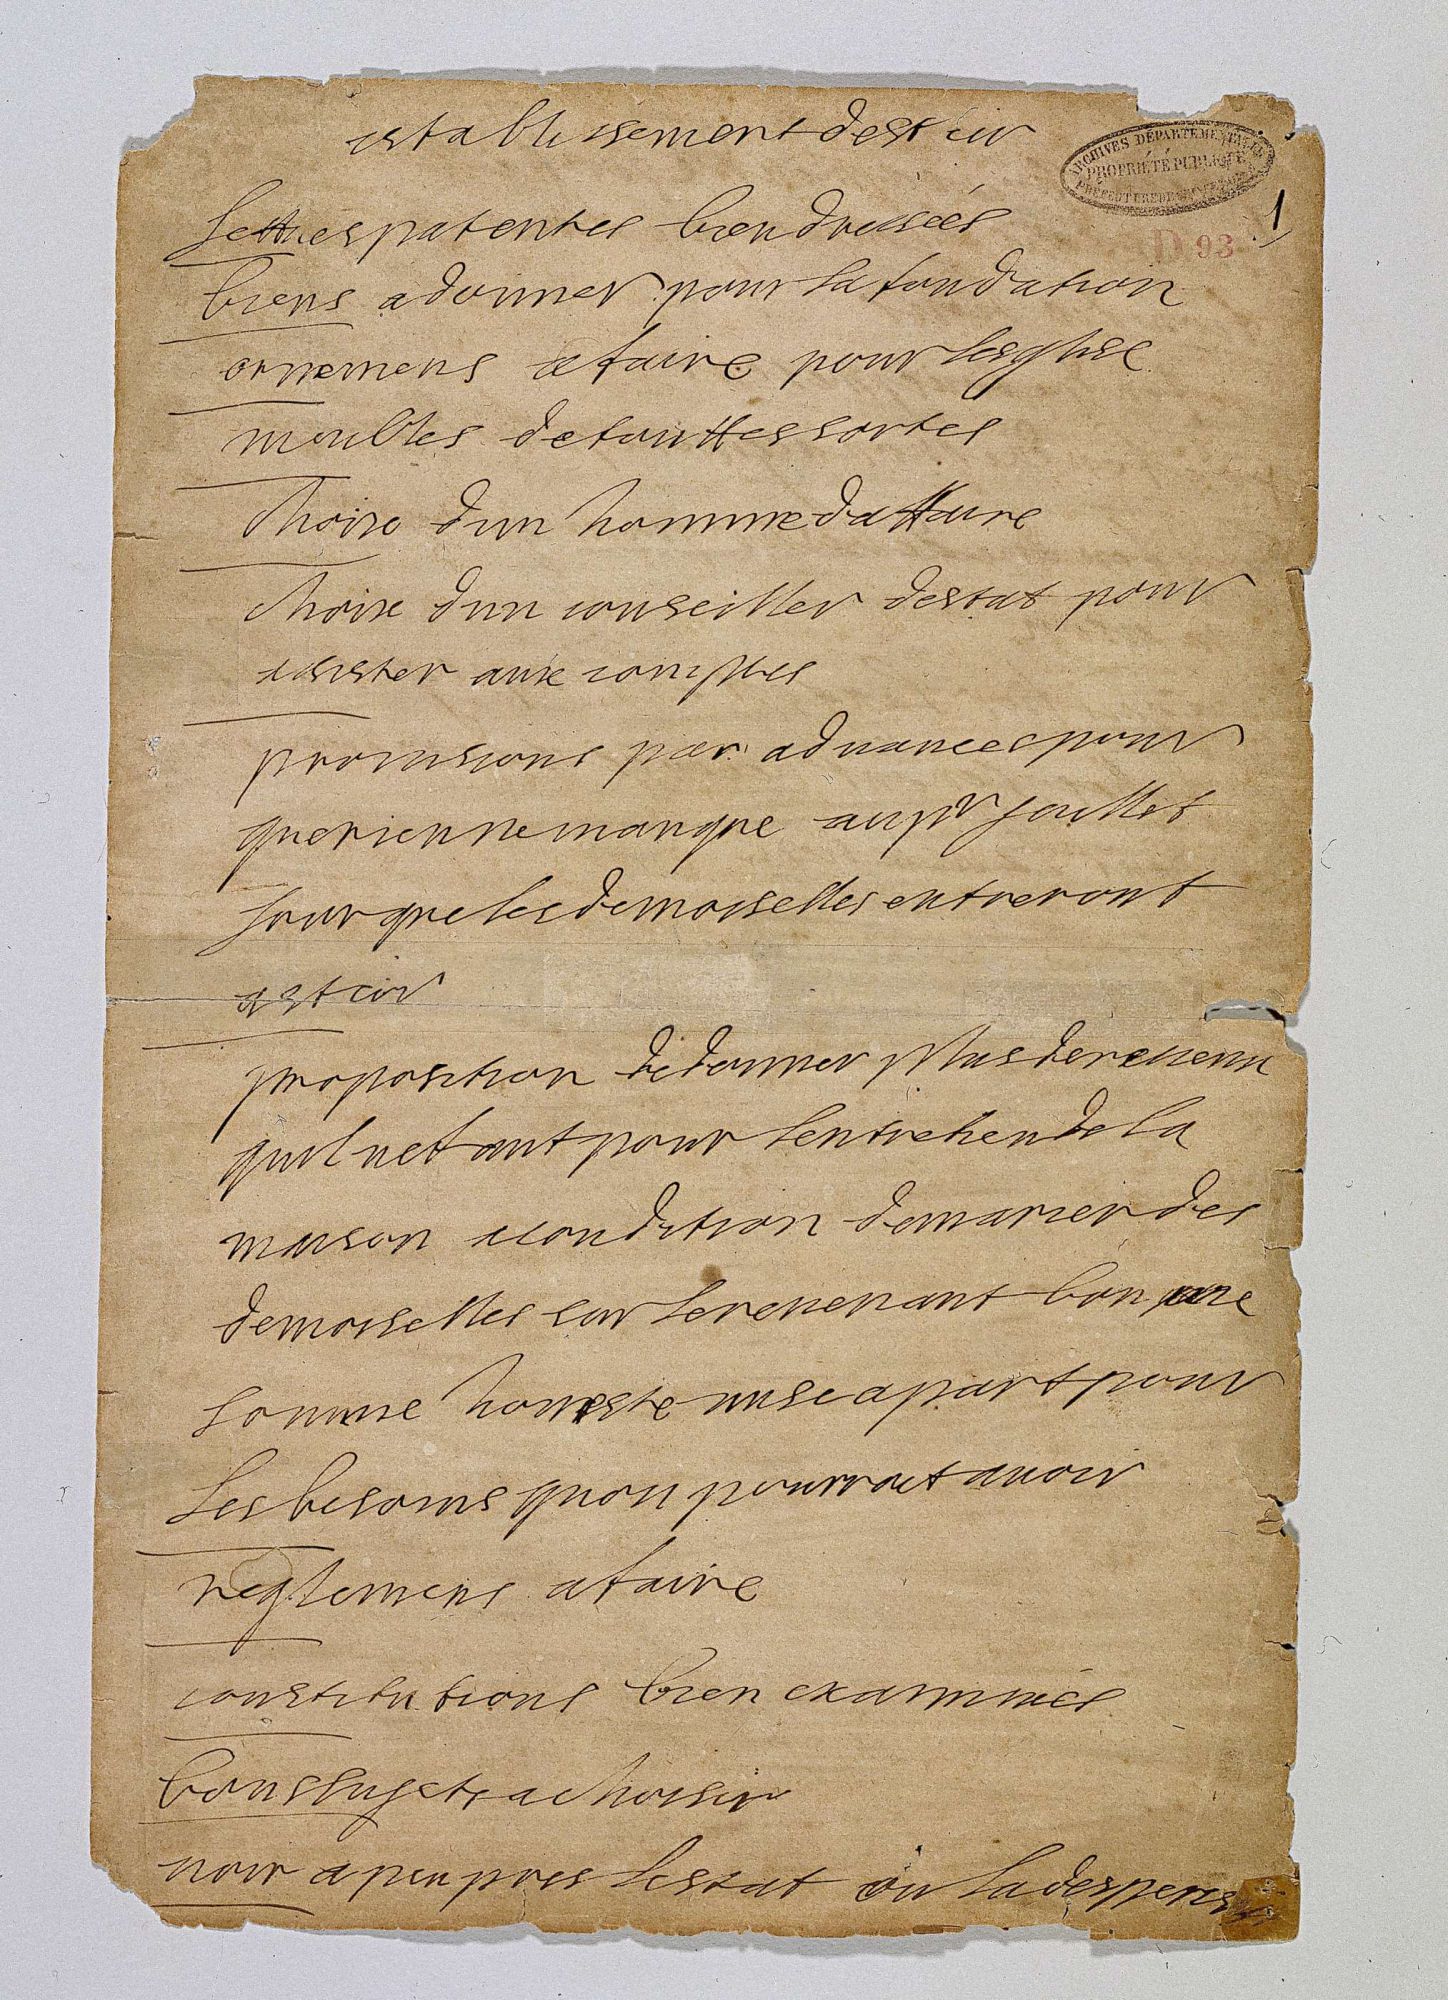 establissement de st cir
ARCHIVES DÉPARTEMENTALES
PROPRIÉTÉ PUBLIQUE
PRÉFECTURE DE SEINE-ET-OISE
1
D 93
Lettres patentes bien dressées
biens a donner pour la fondation
ornemens a faire pour lesglise
meubles de touttes sortes
choix dun homme daffaire
choix dun conseiller destat pour
assister aux comptes
provisions par advances pour
que rien ne manque au pr juillet
jour que les demoiselles entreront
a st cir
proposition de donner plus de revenu
quil ne faut pour lentretien de la
maison a condition de marier des
demoiselles sur le revenant bon une
somme honneste mise a part pour
les besoins quon pourroit avoir
reglemens a faire
constitutions bien examinées
bons sujets a choisir
voir a peu pres lestat ou la despense